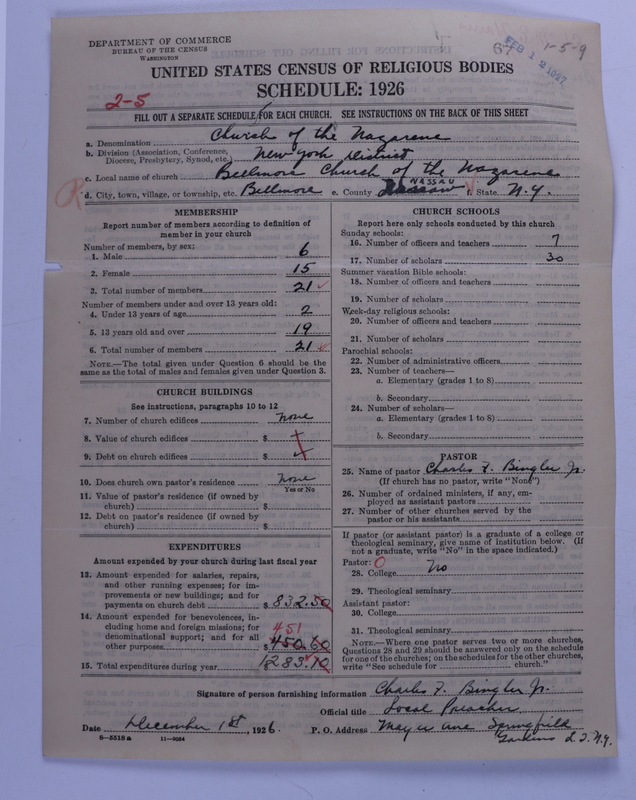 DEPARTMENT OF COMMERCE
BUREAU OF THE CENSUS
WASHINGTON
67
FEB 12 1927
1-5-9
UNITED STATES CENSUS OF RELIGIOUS BODIES
SCHEDULE: 1926
2-5
FILL OUT A SEPARATE SCHEDULE FOR EACH CHURCH. SEE INSTRUCTIONS ON THE BACK OF THIS SHEET
a. Denomination Church of the Nazarene
b. Division (Association, Conference, Diocese, Presbytery, Synod, etc.) New York District
c. Local name of church Bellmore Church of the Nazarene
R
d. City, town, village, or township, etc. Bellmore e. County Nassau NASSAU f. State N.Y.
MEMBERSHIP
Report number of members according to definition of
member in your church
Number of members, by sex:
1. Male 6
2. Female 15
3. Total number of members 21
Number of members under and over 13 years old:
4. Under 13 years of age 2
5. 13 years old and over 19
6. Total number of members 21
NOTE.—The total given under Question 6 should be
same as the total of males and females given under Question 3.
CHURCH BUILDINGS
See instructions, paragraphs 10 to 12
7. Number of church edifices none
8. Value of church edifices $
9. Debt on church edifices $
10. Does church own pastor's residence none
Yes or No
11. Value of pastor's residence (if owned by
church) $
12. Debt on pastor's residence (if owned by
church) $
EXPENDITURES
Amount expended by your church during last fiscal year
13. Amount expended for salaries, repairs,
and other running expenses; for im-
provements or new buildings; and for
payments on church debt $ 832.50
14. Amount expended for benevolences, in-
cluding home and foreign missions; for
denominational support; and for all
other purposes $ 450.60
451
15. Total expenditures during year 1283.10
CHURCH SCHOOLS
Report here only schools conducted by this church
Sunday schools:
16. Number of officers and teachers 7
17. Number of scholars 30
Summer vacation Bible schools:
18. Number of officers and teachers
19. Number of scholars
Week-day religious schools:
20. Number of officers and teachers
21. Number of scholars
Parochial schools:
22. Number of administrative officers
23. Number of teachers—
a. Elementary (grades 1 to 8)
b. Secondary
24. Number of scholars—
a. Elementary (grades 1 to 8)
b. Secondary
PASTOR
25. Name of pastor Charles F. Bingler Jr.
(If church has no pastor, write "None")
26. Number of ordained ministers, if any, em-
ployed as assistant pastors
27. Number of other churches served by the
pastor or his assistants
If pastor (or assistant pastor) is a graduate of a college or
theological seminary, give name of institution below. (If
not a graduate, write "No" in the space indicated.)
Pastor: O
28. College No
29. Theological seminary
Assistant pastor:
30. College
31. Theological seminary
NOTE.—Where one pastor serves two or more churches,
Questions 28 and 29 should be answered only on the schedule
for one of the churches; on the schedules for the other churches,
write "See schedule for church."
Signature of person furnishing information Charles F. Bingler Jr.
Official title Local Preacher
Date December 1st, 1926. P. O. Address Mayer Ave Springfield
Gardens L.I. N.Y.
8-5518a 11-9084